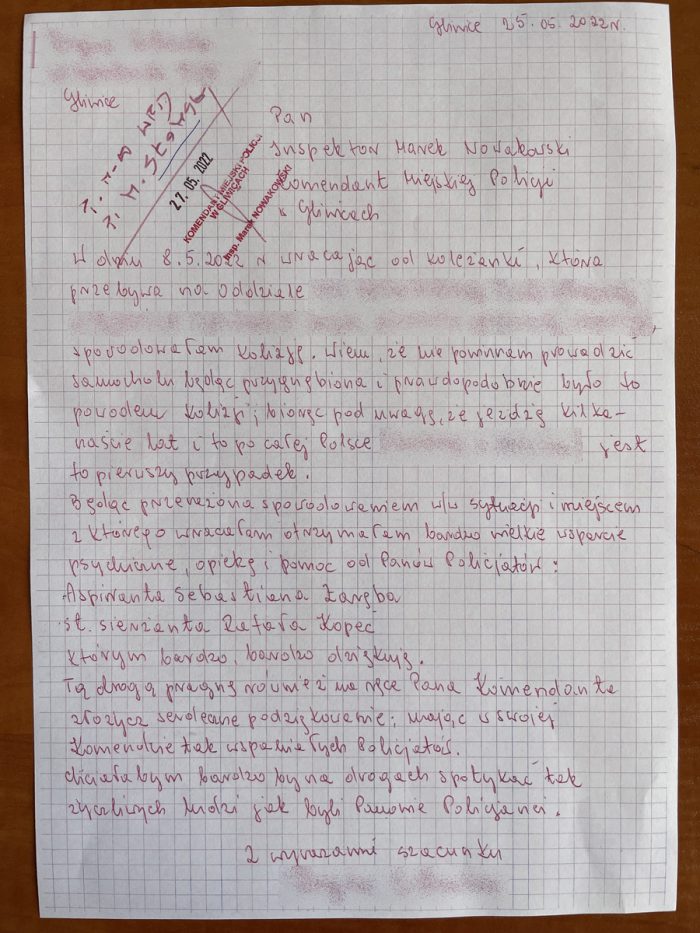 Gliwice 25.05.2022 r.
Gliwice
27.05.2022
KOMENDANT MIEJSKI POLICJI
W GLIWICACH
insp. Marek NOWAKOWSKI
Pan
Inspektor Marek Nowakowski
Komendant Miejskiej Policji
w Gliwicach
W dniu 8.5.2022 r wracając od koleżanki, która
przebywa na Oddziale
spowodowałam kolizję. Wiem, że nie powinnam prowadzić
samochodu będąc przygnębiona i prawdopodobnie było to
powodem kolizji; biorąc pod uwagę, że jeżdżę kilka-
naście lat i to po całej Polsce jest
to pierwszy przypadek.
Będąc przerażona spowodowaniem w/w sytuacji i miejscem
z którego wracałam otrzymałam bardzo wielkie wsparcie
psychiczne, opiekę i pomoc od Panów Policjatów:
Aspiranta Sebastiana Zaręba
st. sierżanta Rafała Kopeć
którym bardzo, bardzo dziękuję.
Tą drogą pragnę również na ręce Pana Komendanta
złożyć serdeczne podziękowanie; mając w swojej
Komendzie tak wspaniałych Policjatów.
chciałabym bardzo by na drogach spotykać tak
życzliwych ludzi jak byli Panowie Policjanci.
Z wyrazami szacunku